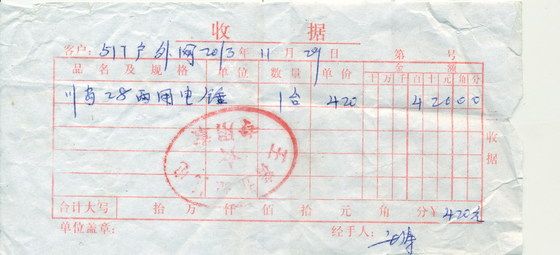 收 据
客户: 517户外网 2013年 11月 29日 第 号
品名及规格 单位 数量 单价 金额
十 万 千 百 十 元 角 分
28两用电锤 1台 420 4 2 0 0 0
收据
合计大写 拾 万 仟 佰 拾 元 角 分 ¥ 420元
单位盖章: 经手人: